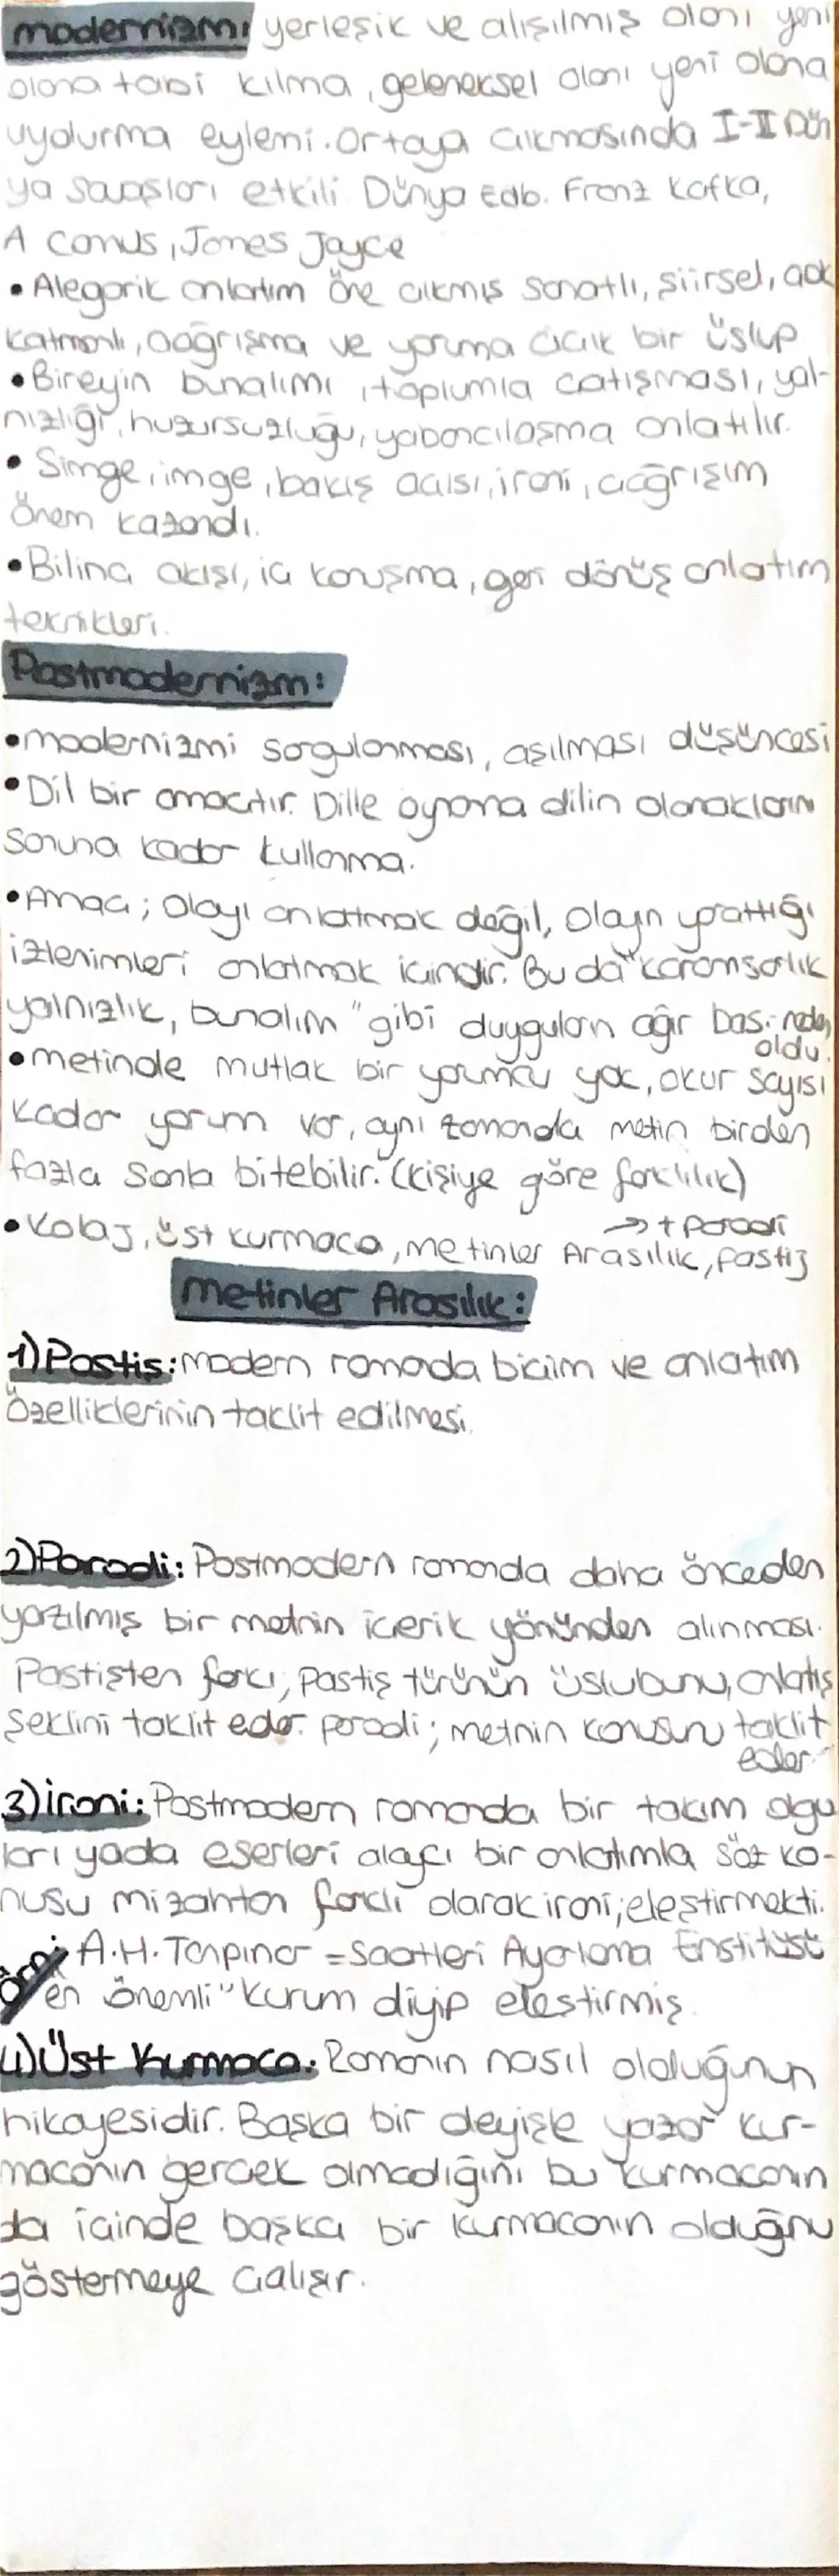 modernizm: yerleşik ve alışılmış olanı yeni
olana tabi kılma, geleneksel olanı yeni olana
uydurma eylemi. Ortaya çıkmasında I-II Dün
ya savaşları etkili Dünya Edb. Franz Kafka,
A Camus, James Joyce
• Alegorik anlatım öne çıkmış sanatlı, şiirsel, çok
katmanlı, çağrışma ve yoruma açık bir üslup
• Bireyin bunalımı, toplumla çatışması, yal-
nızlığı, huzursuzluğu, yabancılaşma anlatılır.
• Simge, imge, bakış açısı, ironi, çağrışım
önem kazandı.
• Bilinç akışı, iç konuşma, geri dönüş anlatım
teknikleri.
Postmodernizm:
• modernizmi sorgulanması, aşılması düşüncesi
• Dil bir amaçtır. Dille oynama dilin olanaklarını
sonuna kadar kullanma.
• Amaç; olayı anlatmak değil, olayın yarattığı
izlenimleri anlatmak içindir. Bu da "karamsarlık
yalnızlık, bunalım" gibi duyguların ağır bas. neden
oldu.
• metinde mutlak bir yorumcu yok, okur sayısı
kadar yorum var, aynı zamanda metin birden
fazla sonla bitebilir. (kişiye göre farklılık)
→ + parodi
• Kolaj, üst kurmaca, metinler Arasılık, pastiş
metinler Arasılık:
1) Pastiş: modern romanda biçim ve anlatım
özelliklerinin taklit edilmesi.
2) Parodi: Postmodern romanda daha önceden
yazılmış bir metnin içerik yönünden alınması.
Pastişten farkı, pastiş türünün üslubunu, anlatış
şeklini taklit eder. parodi; metnin konusunu taklit
eder.
3) ironi: Postmodern romanda bir takım olgu
ları yada eserleri alaycı bir anlatımla söz ko-
nusu mizahtan farklı olarak ironi; eleştirmekti.
A.H. Tanpınar = Saatleri Ayarlama Enstitüsü
en önemli" kurum diyip eleştirmiş.
4) Üst Kurmaca: Romanın nasıl olduğunun
hikayesidir. Başka bir deyişle yazar kur-
macanın gerçek olmadığını bu kurmacanın
da içinde başka bir kurmacanın olduğnu
göstermeye çalışır.